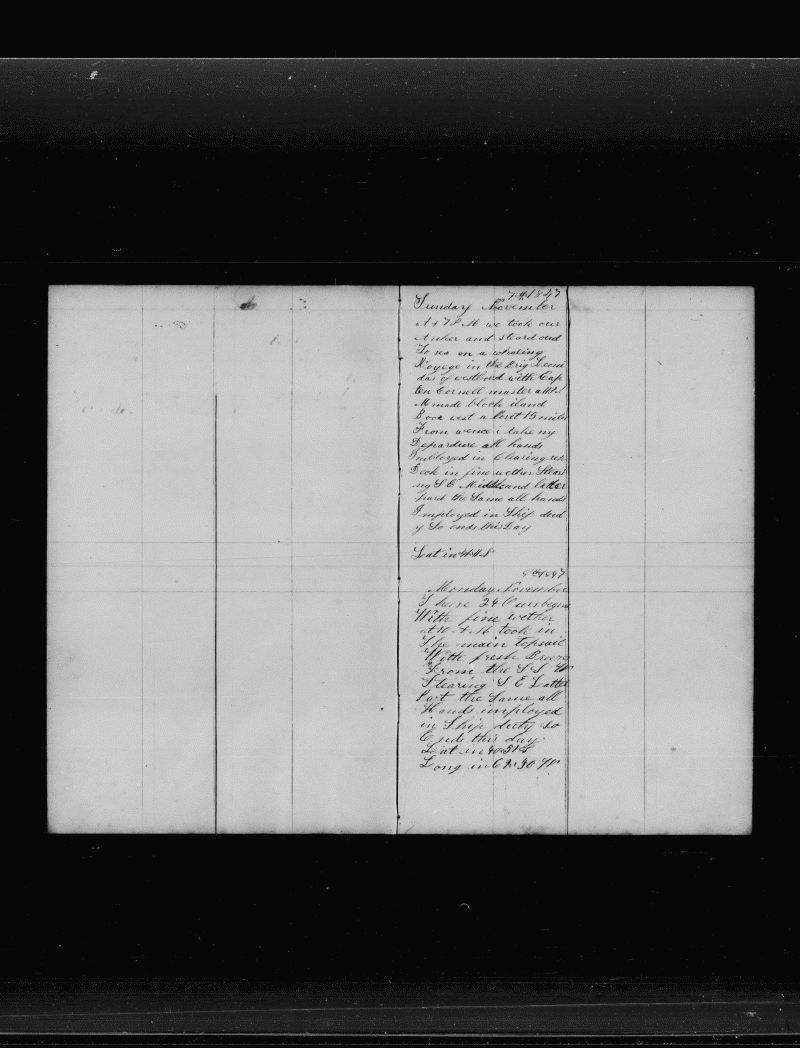 7th 1847
Sunday November
At 7 P M we took our
Anker and steard oud
To sea on a whaling
Voyege in the Brig Leoni
das of westbord with Cap
ten Cornell master at
M made block iland
Boor west a bout 15 miles
From wence i take my
Depardure all hands
Imbloyed in Clearing up
Deck in fine wether Steari
ng S E Middle and latter
pard the Same all hands
Imployed in Ship dud
y So ends this Day
Lat in N
8th 1847
Monday November
These 24 Ours begins
With fine wether
at A M took in
The main topsail
With fresh Breeze
From the S S W
Stearing S E Latter
Part the Same all
Hands imployed
in Ship duty so
Ends this day
Lat in 40.51 N
Long in 69.30 W